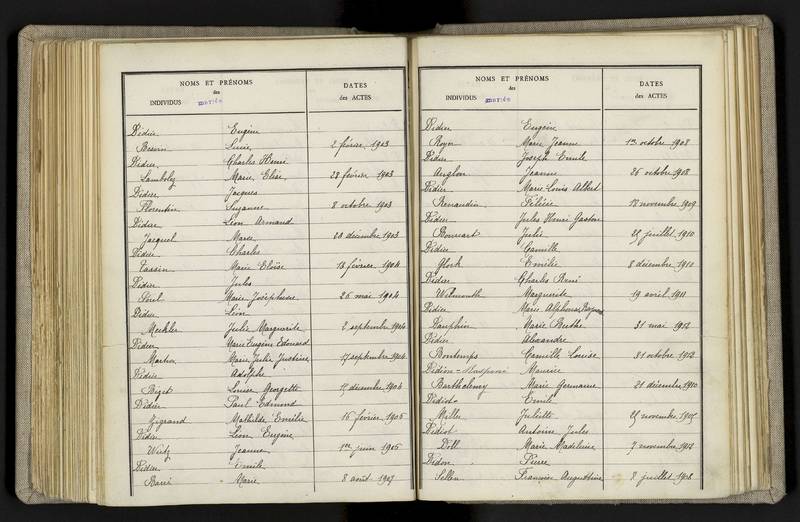 NOMS ET PRÉNOMS
des
INDIVIDUS mariés
DATES
des ACTES
Didier Eugène
Lucie 2 février 1903
Didier Charles Henri
Lamboley Marie Elise 28 février 1903
Didier Jacques
Florentin Suzanne 8 octobre 1903
Didier Léon Armand
Jacquel Marie 23 décembre 1903
Didier Charles
Tassin Marie Eloïse 13 février 1904
Didier Jules
Marie Joséphine 26 mai 1904
Didier Léon
Merkler Julie Marguerite 2 septembre 1904
Didier Marie Eugène Edouard
Marton Marie Julie Justine 17 septembre 1904
Didier Adolphe
Biget Louise Georgette 15 décembre 1904
Didier Paul Edmond
Gigrand Mathilde Emilie 16 février 1905
Didier Léon Eugène
Wirtz Jeanne 1er juin 1905
Didier Emile
Barré Marie 8 août 1907
NOMS ET PRÉNOMS
des
INDIVIDUS mariés
DATES
des ACTES
Didier Eugène
Royer Marie Jeanne octobre 1908
Didier Joseph Emile
Anglon Jeanne 26 octobre 1908
Didier Marie Louis Albert
Renaudin Félicie novembre 1909
Didier Jules Henri Gaston
Boursart Julie 25 juillet 1910
Didier Camille
Glock Emélie 8 décembre 1910
Didier Charles René
Marguerite 19 avril 1911
Didier Marie Alphonse
Dauphin Marie Berthe 31 mai 1912
Didier Alexandre
Bontemps Camille Louise 31 octobre 1912
Didion Maurice
Barthelemy Marie Germaine 21 décembre 1910
Didiot Emile
Mille Juliette 25 novembre
Didiot Antoine Jules
Doll Marie Madeleine 7 novembre 1912
Didon Pierre
Sellen Françoise Augustine 8 juillet 1908